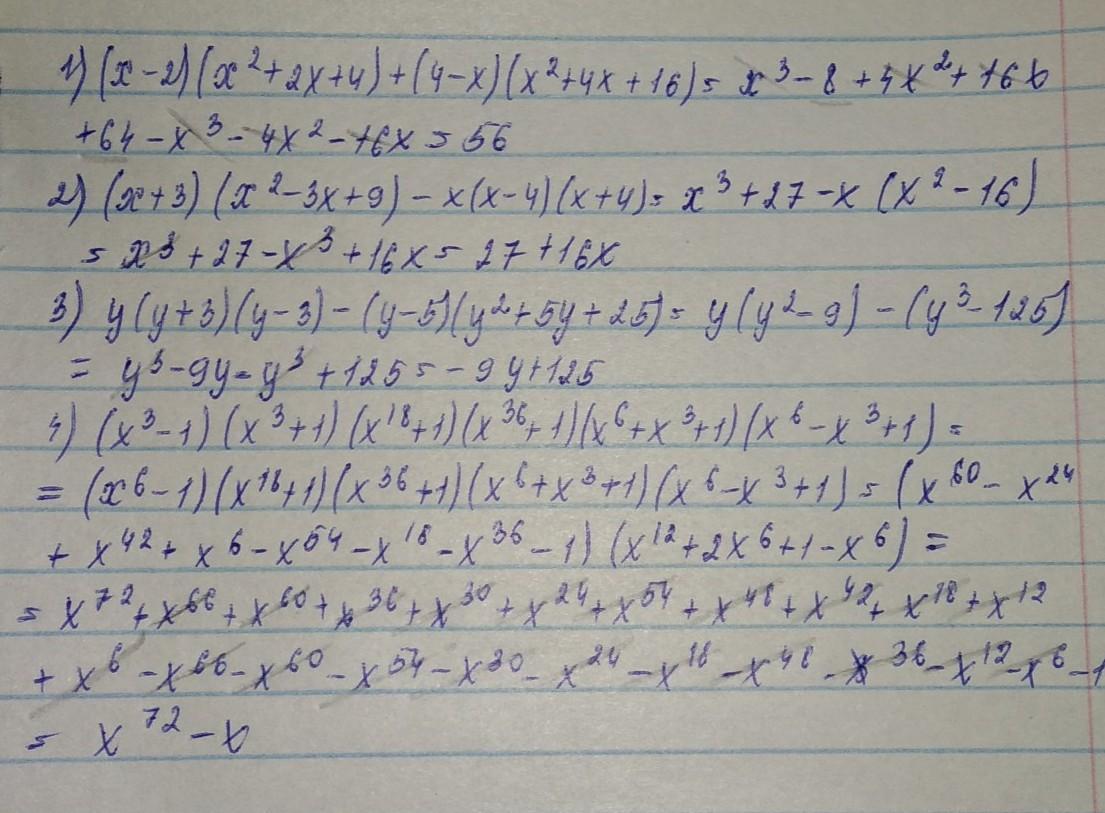 1) (x-2)(x²+2x+4)+(4-x)(x²+4x+16)= x³-8+4x²+16x
+64-x³-4x²-16x=56
2) (x+3)(x²-3x+9)-x(x-4)(x+4)= x³+27-x(x²-16)
= x³+27-x³+16x=27+16x
3) y(y+3)(y-3)-(y-5)(y²+5y+25)= y(y²-9)-(y³-125)
= y³-9y-y³+125=-9y+125
4) (x³-1)(x³+1)(x¹⁸+1)(x³⁶+1)(x⁶+x³+1)(x⁶-x³+1)=
= (x⁶-1)(x¹⁸+1)(x³⁶+1)(x⁶+x³+1)(x⁶-x³+1)=(x⁶⁰-x²⁴
+x⁴²+x⁶-x⁵⁴-x¹⁸-x³⁶-1)(x¹²+2x⁶+1-x⁶)=
= x⁷²+x⁶⁶+x⁶⁰+x³⁶+x³⁰+x²⁴+x⁵⁴+x⁴⁸+x⁴²+x¹⁸+x¹²
+x⁶-x⁶⁶-x⁶⁰-x⁵⁴-x³⁰-x²⁴-x¹⁸-x⁴⁸-x³⁶-x¹²-x⁶-1
= x⁷²-x